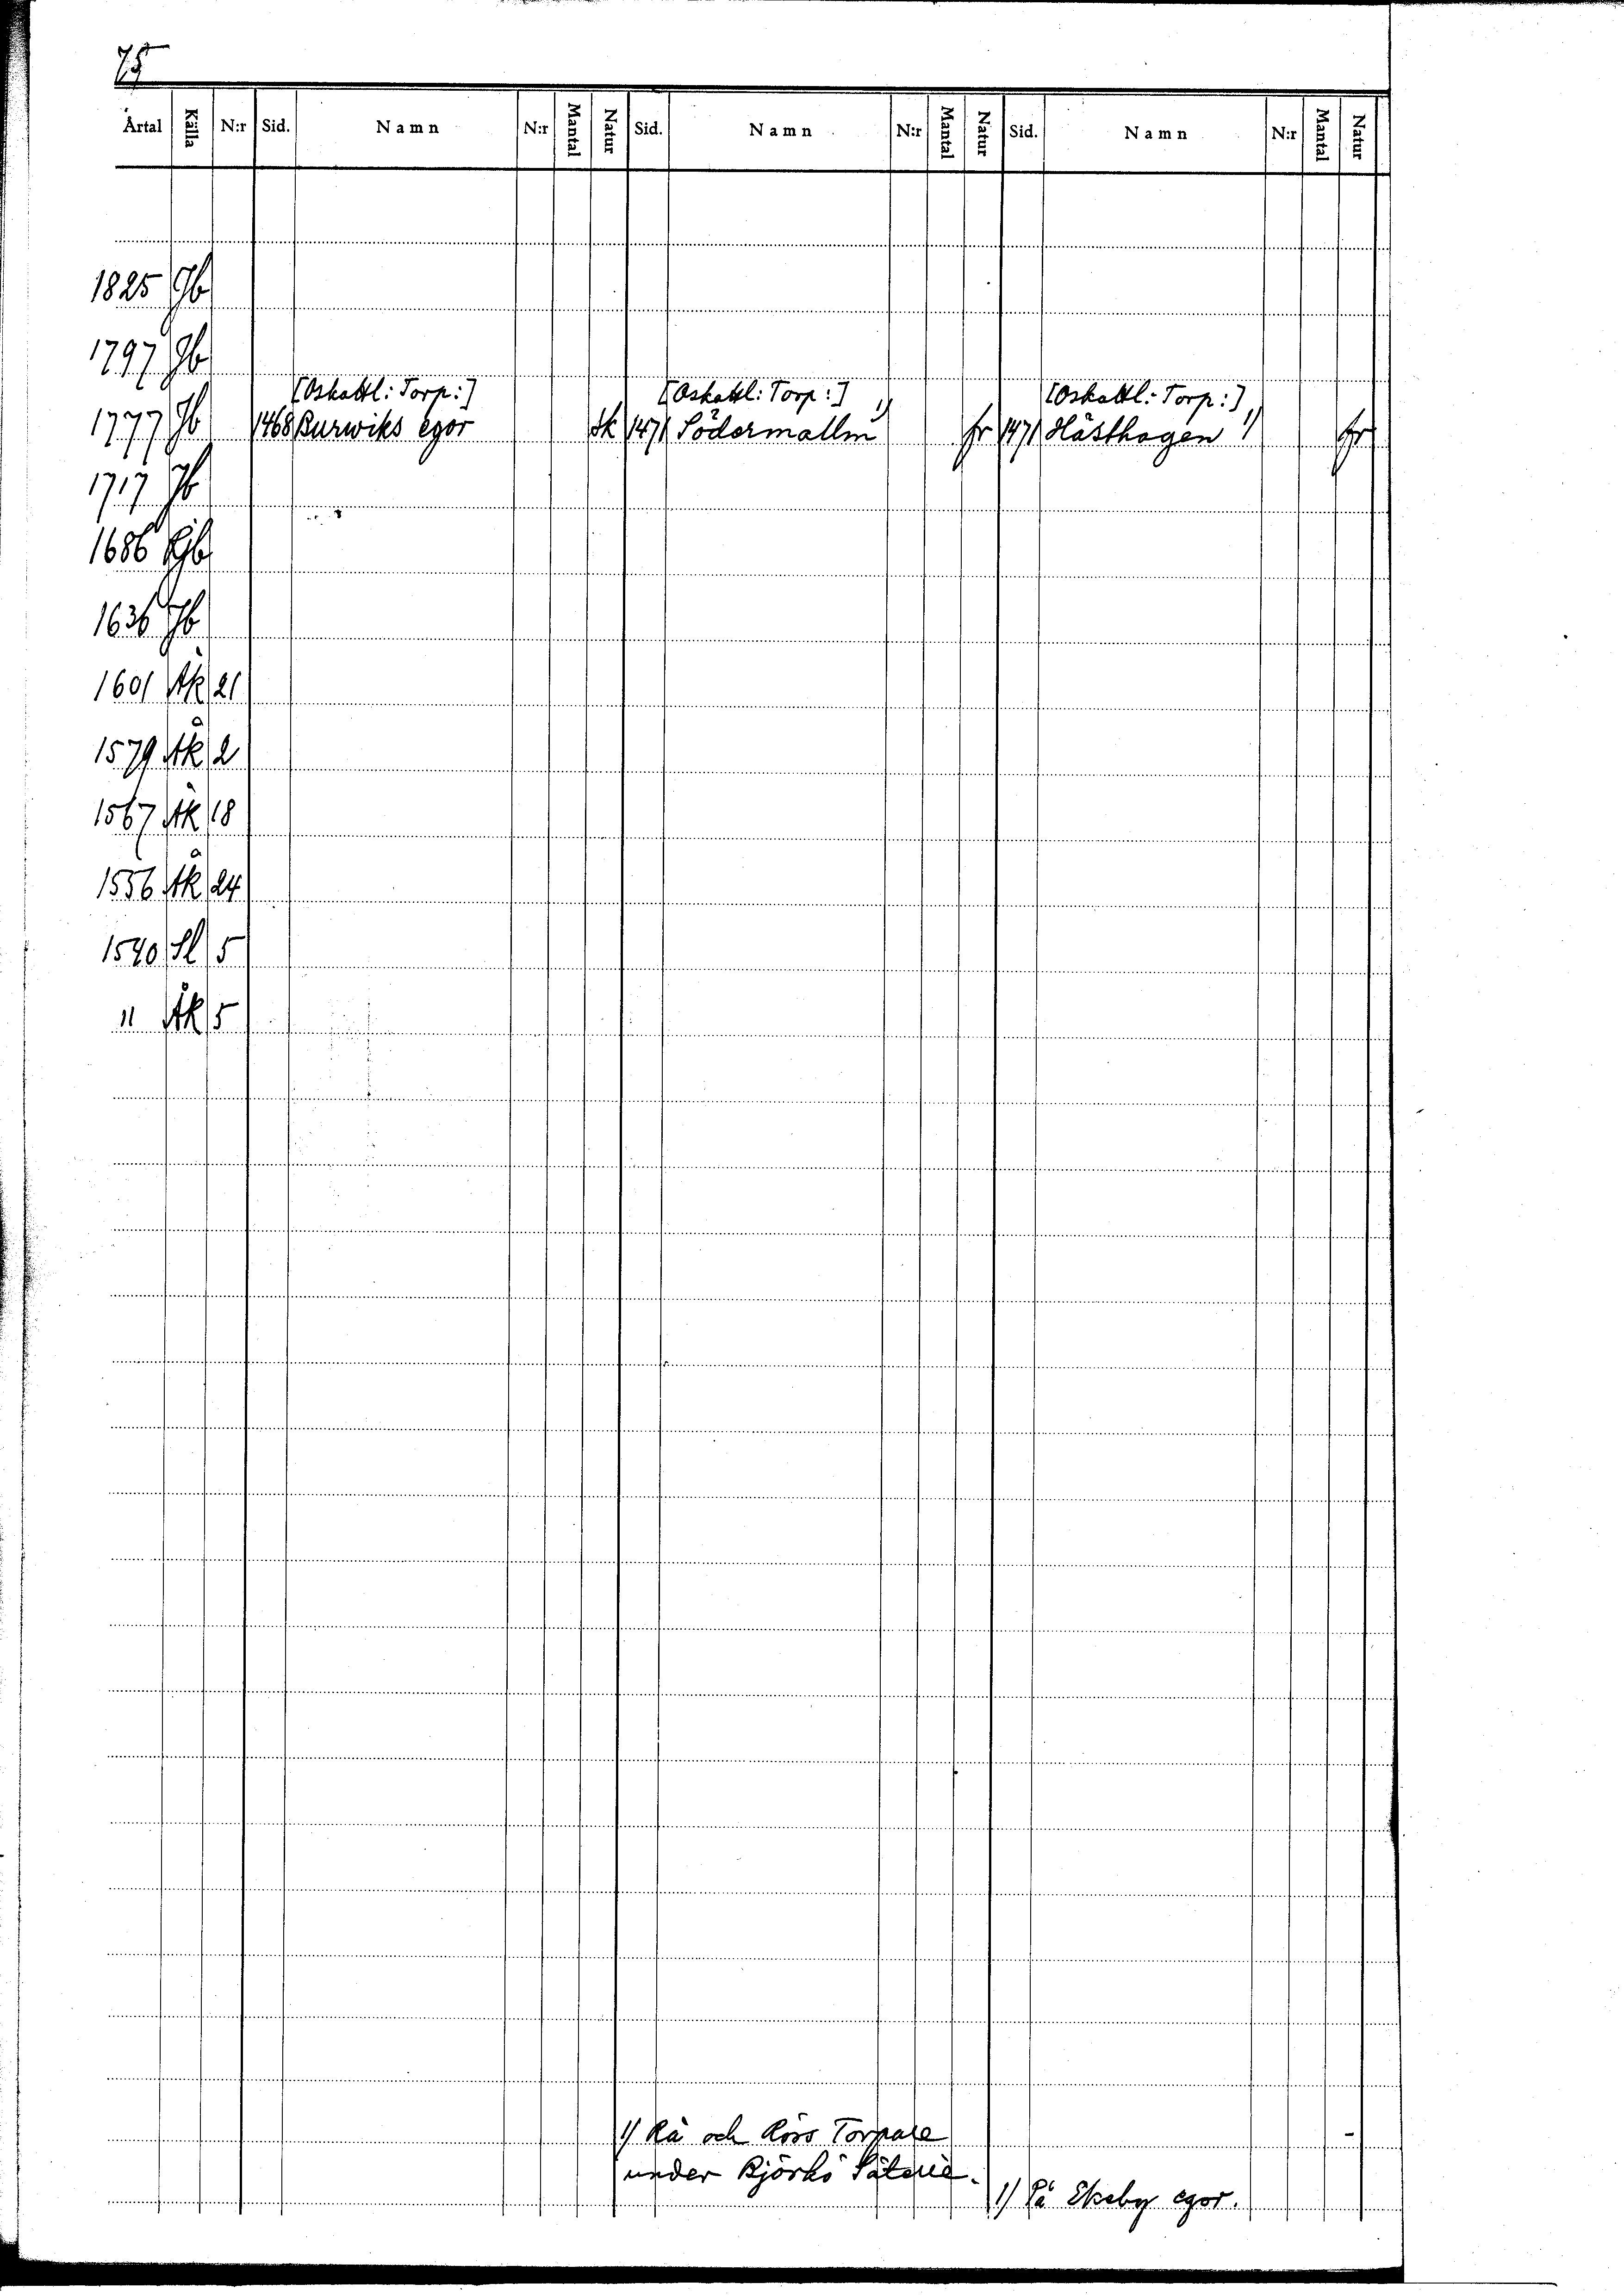 75
Årtal Källa N:r Sid. Namn N:r Mantal Natur Sid. Namn N:r Mantal Natur Sid. Namn N:r Mantal Natur
1825 Jb
1797 Jb
[Oskattl: Torp:] [Oskattl: Torp:] [Oskattl: Torp:]
1777 Jb 1468 Burwiks egor sk 1471 Södermallm 1) fr 1471 Hästhagen 1) fr
1717 Jb
1686 Jb
1636 Jb
1601 Åk 21
1579 Åk 2
1567 Åk 18
1556 Åk 24
1540 Sl 5
" Åk 5
1) Rå och Rörs Torpare
under Björkö Säterie.
1) På Ekeby egor.